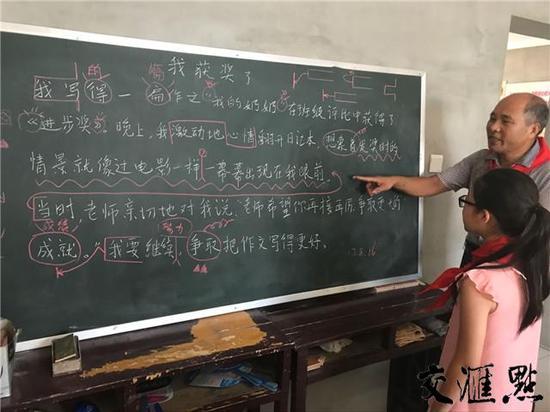 的 篇
我获奖了
我写得一扁作文《我的奶奶》在班级评比中获得了
"进步奖"。晚上,我激动地心情翻开日记本,想象着发奖时的
情景就像过电影一样一幕幕出现在我眼前
当时,老师亲切地对我说:老师希望你再接再厉,争取更好的
成绩 努力
成就。"我要继续,争取把作文写得更好。
17.8.16
交汇點